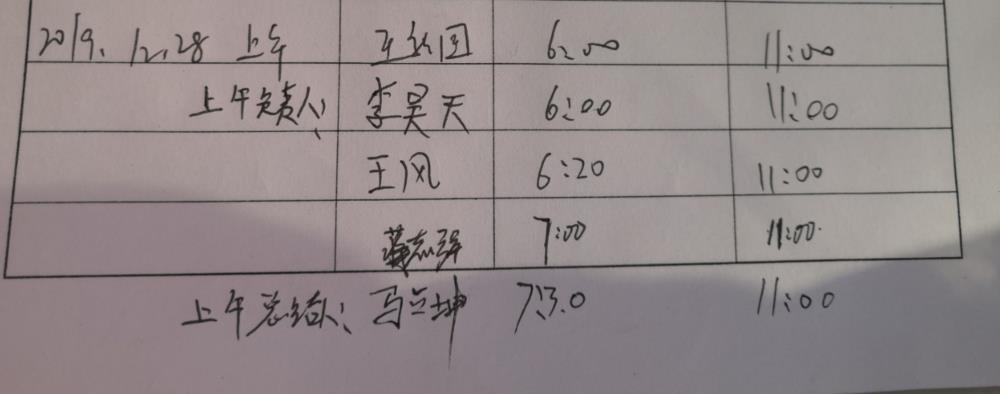 2019.12.28 上午 王红国 6:00 11:00
上午负责人: 李昊天 6:00 11:00
王风 6:20 11:00
志强 7:00 11:00
上午总结人: 马立坤 7:30 11:00